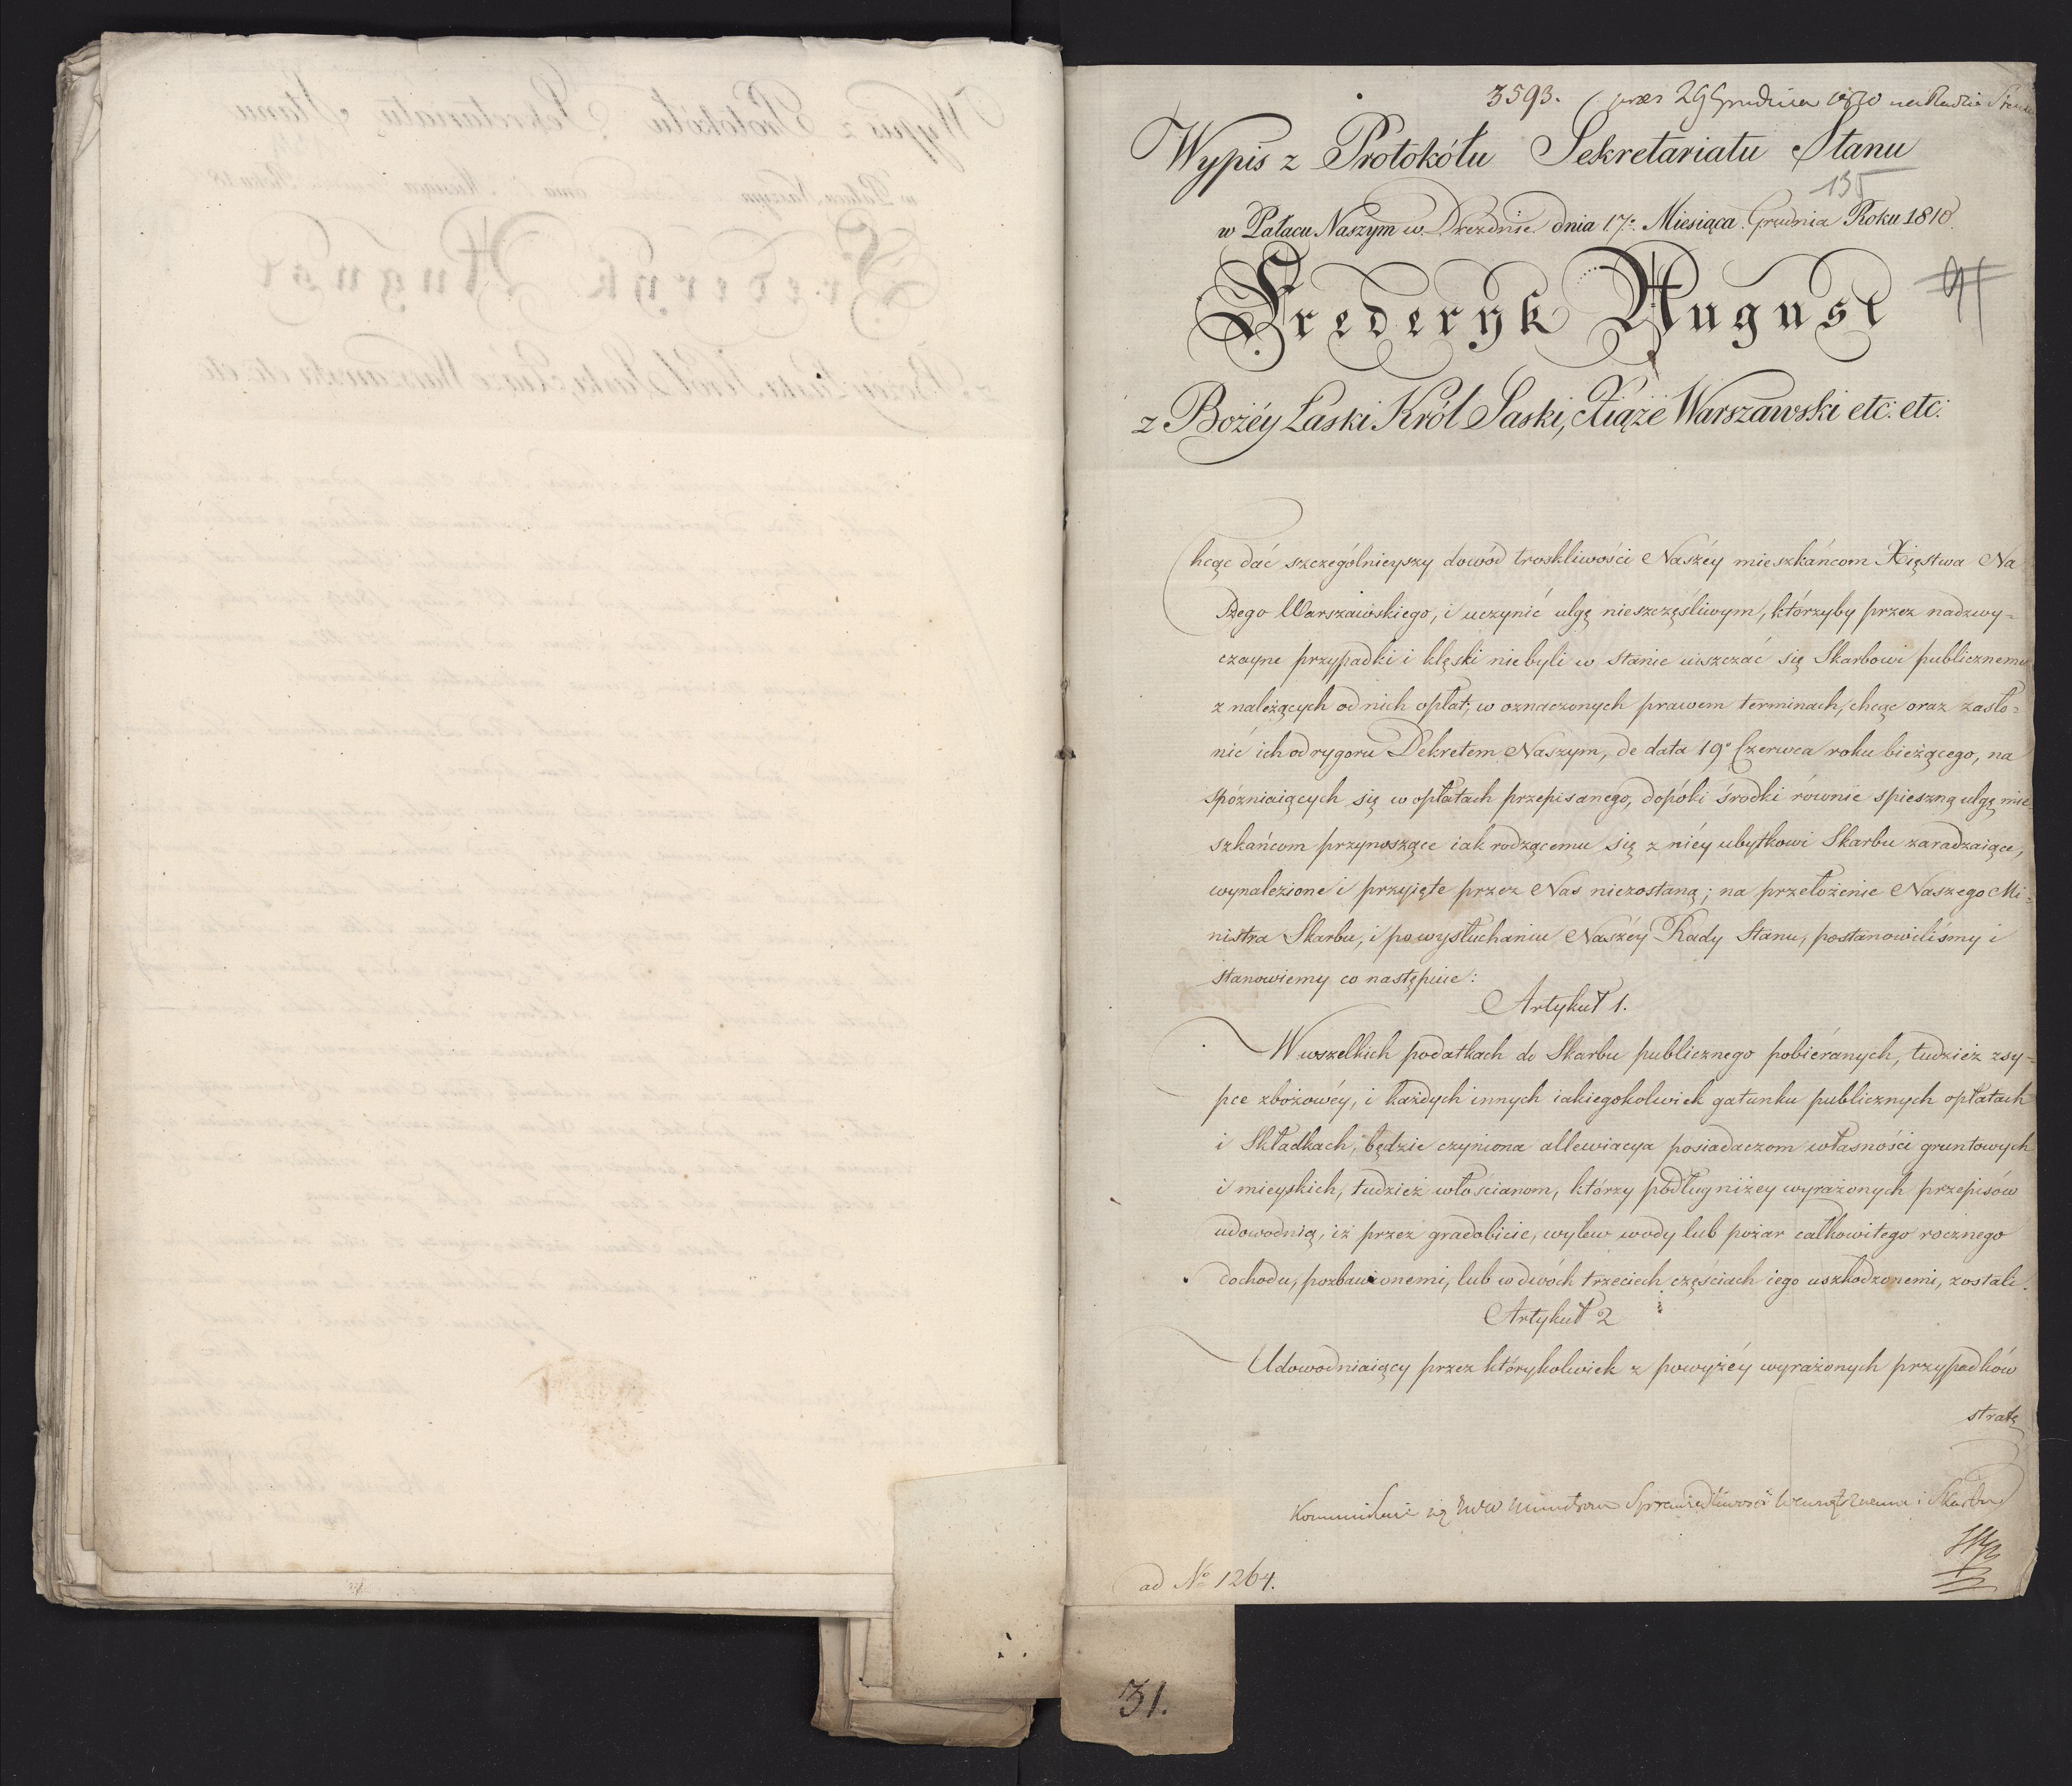 3593. präs 29 Grudnia 1810 na Radzie Stanu
Wypis z Protokółu Sekretariatu Stanu
135
w Pałacu Naszym w Dreznie dnia 17º. Miesiąca Grudnia Roku 1810.
Frederyk August
z Bożéy Łaski Król Saski, Xiąże Warszawski etc: etc:
Chcąc dać szczególnieyszy dowód troskliwości Naszéy mieszkańcom Xięstwa Na
szego Warszawskiego, i uczynić ulgę nieszczęśliwym, którzyby przez nadzwy-
czayne przypadki i klęski niebyli w stanie uiszczać się Skarbowi publicznemu
z należących od nich opłat, w oznaczonych prawem terminach, chcąc oraz zasło-
nić ich od rygoru Dekretem Naszym, de data 19º Czerwca roku bieżącego, na
spózniaiących się w opłatach przepisanego, dopóki środki równie spieszną ulgę mie
szkańcom przynoszące iak rodzącemu się z niéy ubytkowi Skarbu zaradzaiące,
wynalezione i przyięte przez Nas niezostaną; na przełożenie Naszego Mi-
nistra Skarbu, i po wysłuchaniu Naszéy Rady Stanu, postanowiliśmy i
stanowiemy co następuie:
Artykuł 1.
W wszelkich podatkach do Skarbu publicznego pobiéranych, tudzież zsy-
pce zbożowéy, i każdych innych iakiegokolwiek gatunku publicznych opłatach
i Składkach, będzie czyniona allewiacya posiadaczom własności gruntowych
i mieyskich, tudzież włościanom, którzy podług niżey wyrażonych przepisów
udowodnią, iż przez gradobicie, wylew wody lub pożar całkowitego rocznego
dochodu, pozbawionemi, lub w dwóch trzecich częściach iego uszkodzonemi, zostali.
Artykuł 2
Udowodniaiący przez którykolwiek z powyżéy wyrażonych przypadków
stratę
Kommunikuie się JWW Ministrom Sprawiedliwości Wewnętrznemu i Skarbu
ad Nº 1264.
31.